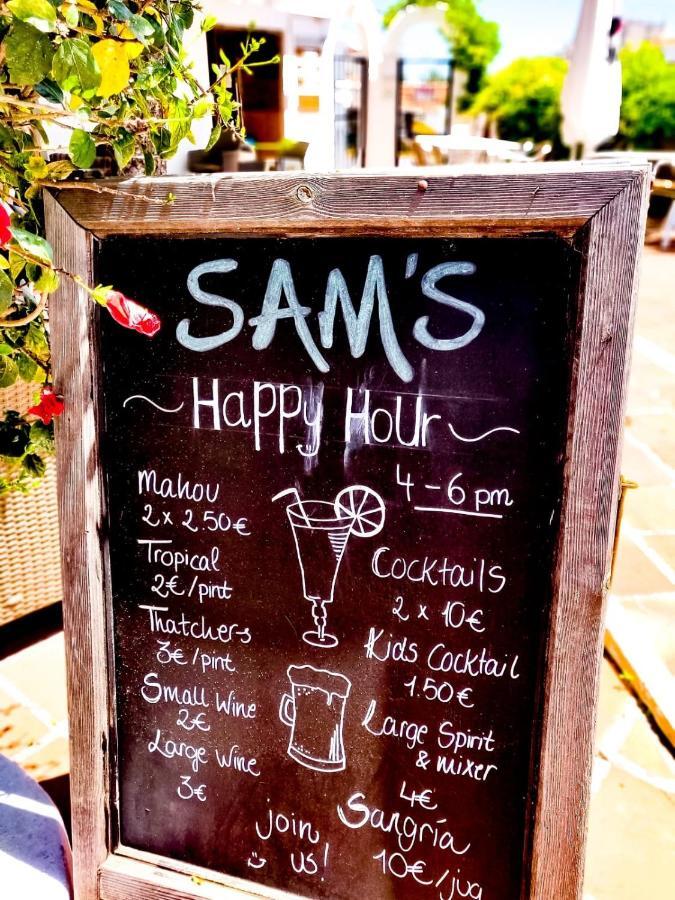 SAM'S
Happy Hour
4-6 pm
Mahou
2 x 2.50€
Tropical
2€/pint
Thatchers
3€/pint
Small Wine
2€
Large Wine
3€
Cocktails
2 x 10€
Kids Cocktail
1.50€
Large Spirit
& mixer
4€
Sangría
10€/jug
join
us!